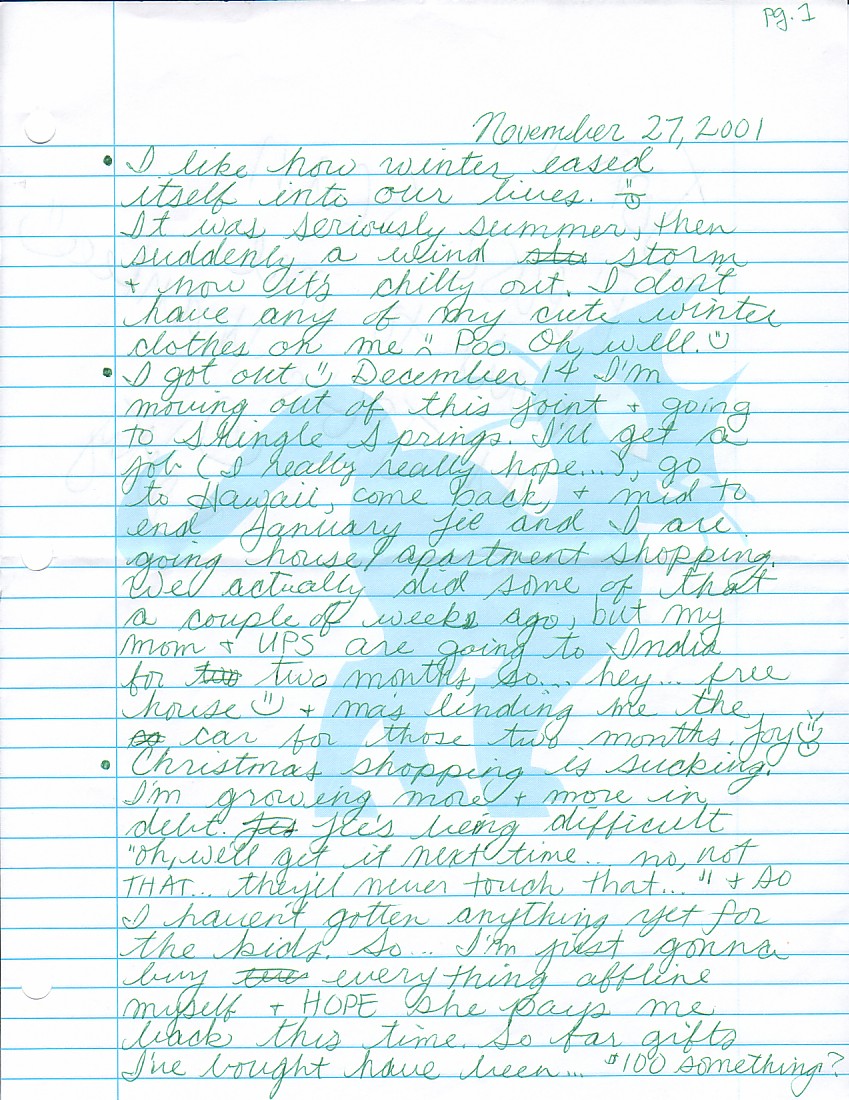 pg. 1
November 27, 2001
• I like how winter eased
itself into our lives.
It was seriously summer, then
suddenly a wind storm
+ now it's chilly out. I don't
have any of my cute winter
clothes on me Poo. Oh, well.
• I got out December 14 I'm
moving out of this joint + going
to Shingle Springs. I'll get a
job (I really really hope...), go
to Hawaii, come back, + mid to
end January Jee and I are
going house/apartment shopping.
We actually did some of that
a couple of weeks ago, but my
mom + UPS are going to India
for two months, so... hey... free
house + ma's lending me the
car for those two months. Joy
• Christmas shopping is sucking.
I'm growing more + more in
debt. Jee's being difficult
"oh, we'll get it next time... no, not
THAT... they'll never touch that..." + so
I haven't gotten anything yet for
the kids. So... I'm just gonna
buy everything offline
myself + HOPE she pays me
back this time. So far gifts
I've bought have been... $100 something?